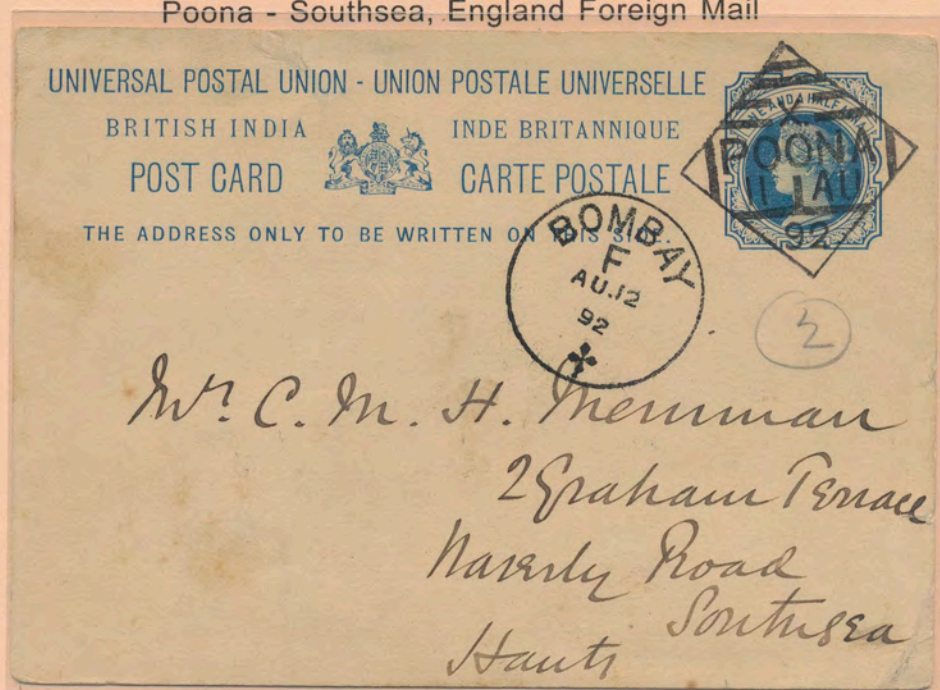 Poona - Southsea, England Foreign Mail
UNIVERSAL POSTAL UNION - UNION POSTALE UNIVERSELLE
BRITISH INDIA INDE BRITANNIQUE
POST CARD CARTE POSTALE
THE ADDRESS ONLY TO BE WRITTEN ON THIS SIDE.
ONE AND A HALF
X
POONA
11 AU
92
BOMBAY
F
AU.12
92
2
Mr. C. M. H. Merriman
2 Graham Terrace
Waverly Road
Southsea
Hants